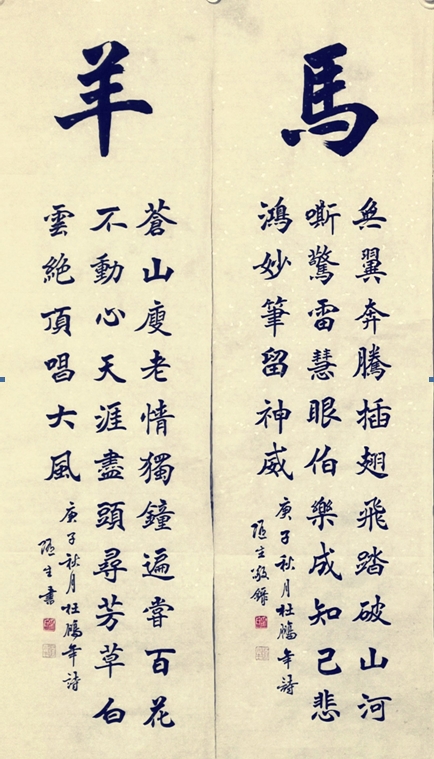 馬
無翼奔騰插翅飛踏破山河
嘶驚雷慧眼伯樂成知己悲
鴻妙筆留神威
庚子秋月杜鵬年詩
生敬錄
羊
蒼山廋老情獨鐘遍嘗百花
不動心天涯盡頭尋芳草白
雲絕頂唱大風
庚子秋月杜鵬年詩
生書